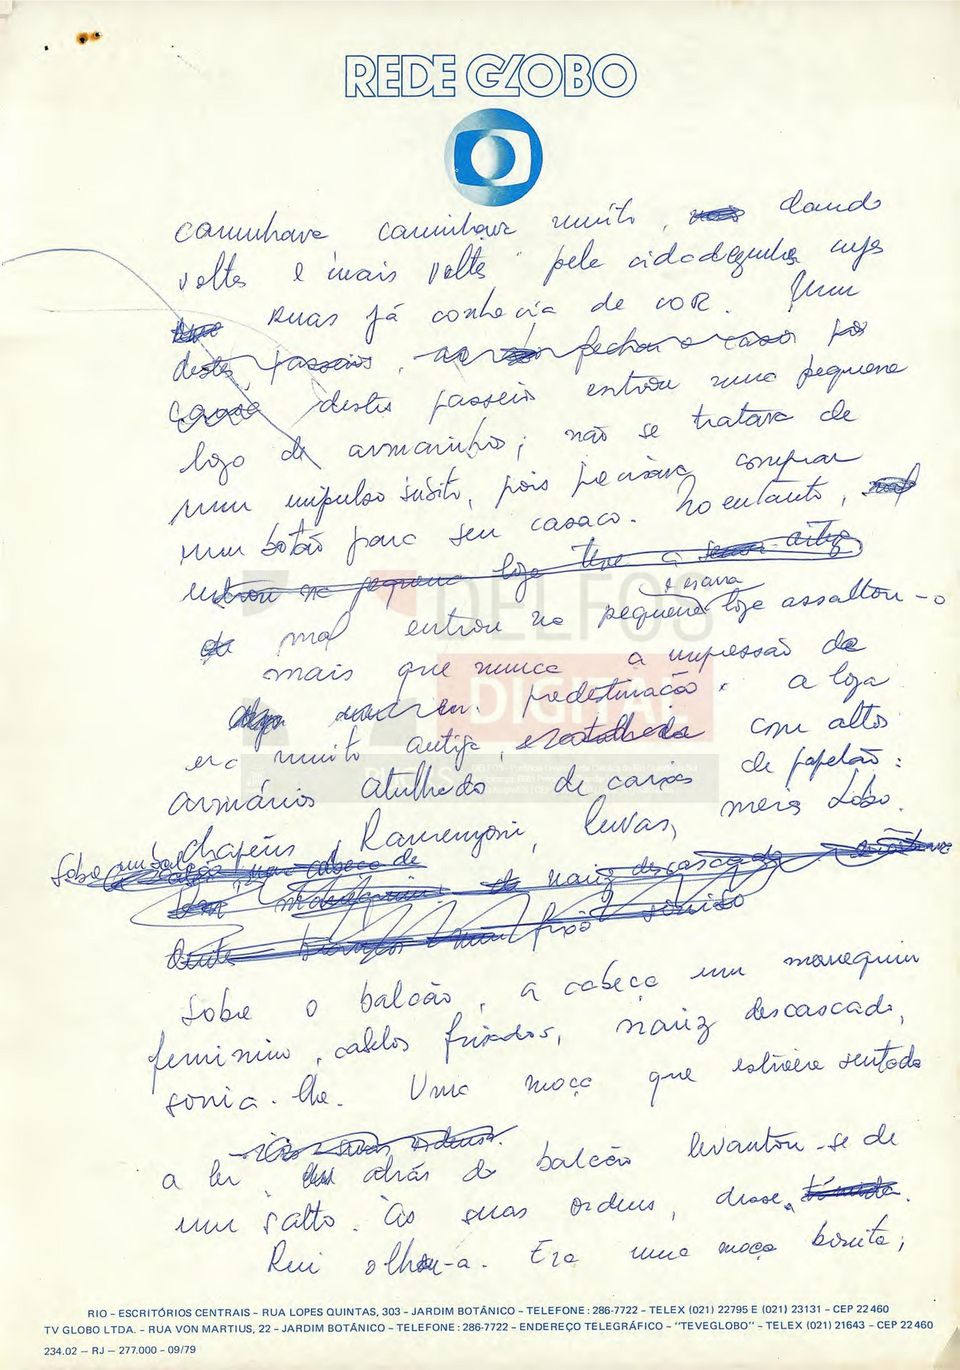 REDE GLOBO
caminhava caminhava muito, dando
voltas e mais voltas pela cidadezinha cujas
ruas já conhecia de cor. Num
destes passeios, fechou o casaco pos
destes passeios entrou numa pequena
loja de armarinho; não se tratava de
num impulso súbito, pois precisava comprar
um botão para seu casaco. No entanto,
entrou na pequena loja teve a
mal entrou na pequena loja assaltou-o
mais que nunca a impressão de
predestinação. a loja
era muito antiga, com altos
armários atulhado de caixas de papelão:
chapéus Ramenzoni, luvas, meias Lobo.
Sobre um balcão, uma cabeça de
manequim de nariz descascado
Sobre o balcão, a cabeça um manequim
feminino, cabelos frisados, nariz descascado,
sorria-lhe. Uma moça que estivera sentada
- Às suas ordens.
a ler atrás do balcão levantou-se de
um salto. Às suas ordens, disse, tímida.
Rui olhou-a. Era uma moça bonita;
DELFOS
DIGITAL
PUCRS
RIO – ESCRITÓRIOS CENTRAIS – RUA LOPES QUINTAS, 303 – JARDIM BOTÂNICO – TELEFONE: 286-7722 – TELEX (021) 22795 E (021) 23131 – CEP 22460
TV GLOBO LTDA. – RUA VON MARTIUS, 22 – JARDIM BOTÂNICO – TELEFONE: 286-7722 – ENDEREÇO TELEGRÁFICO – "TEVEGLOBO" – TELEX (021) 21643 – CEP 22460
234.02 – RJ – 277.000 - 09/79